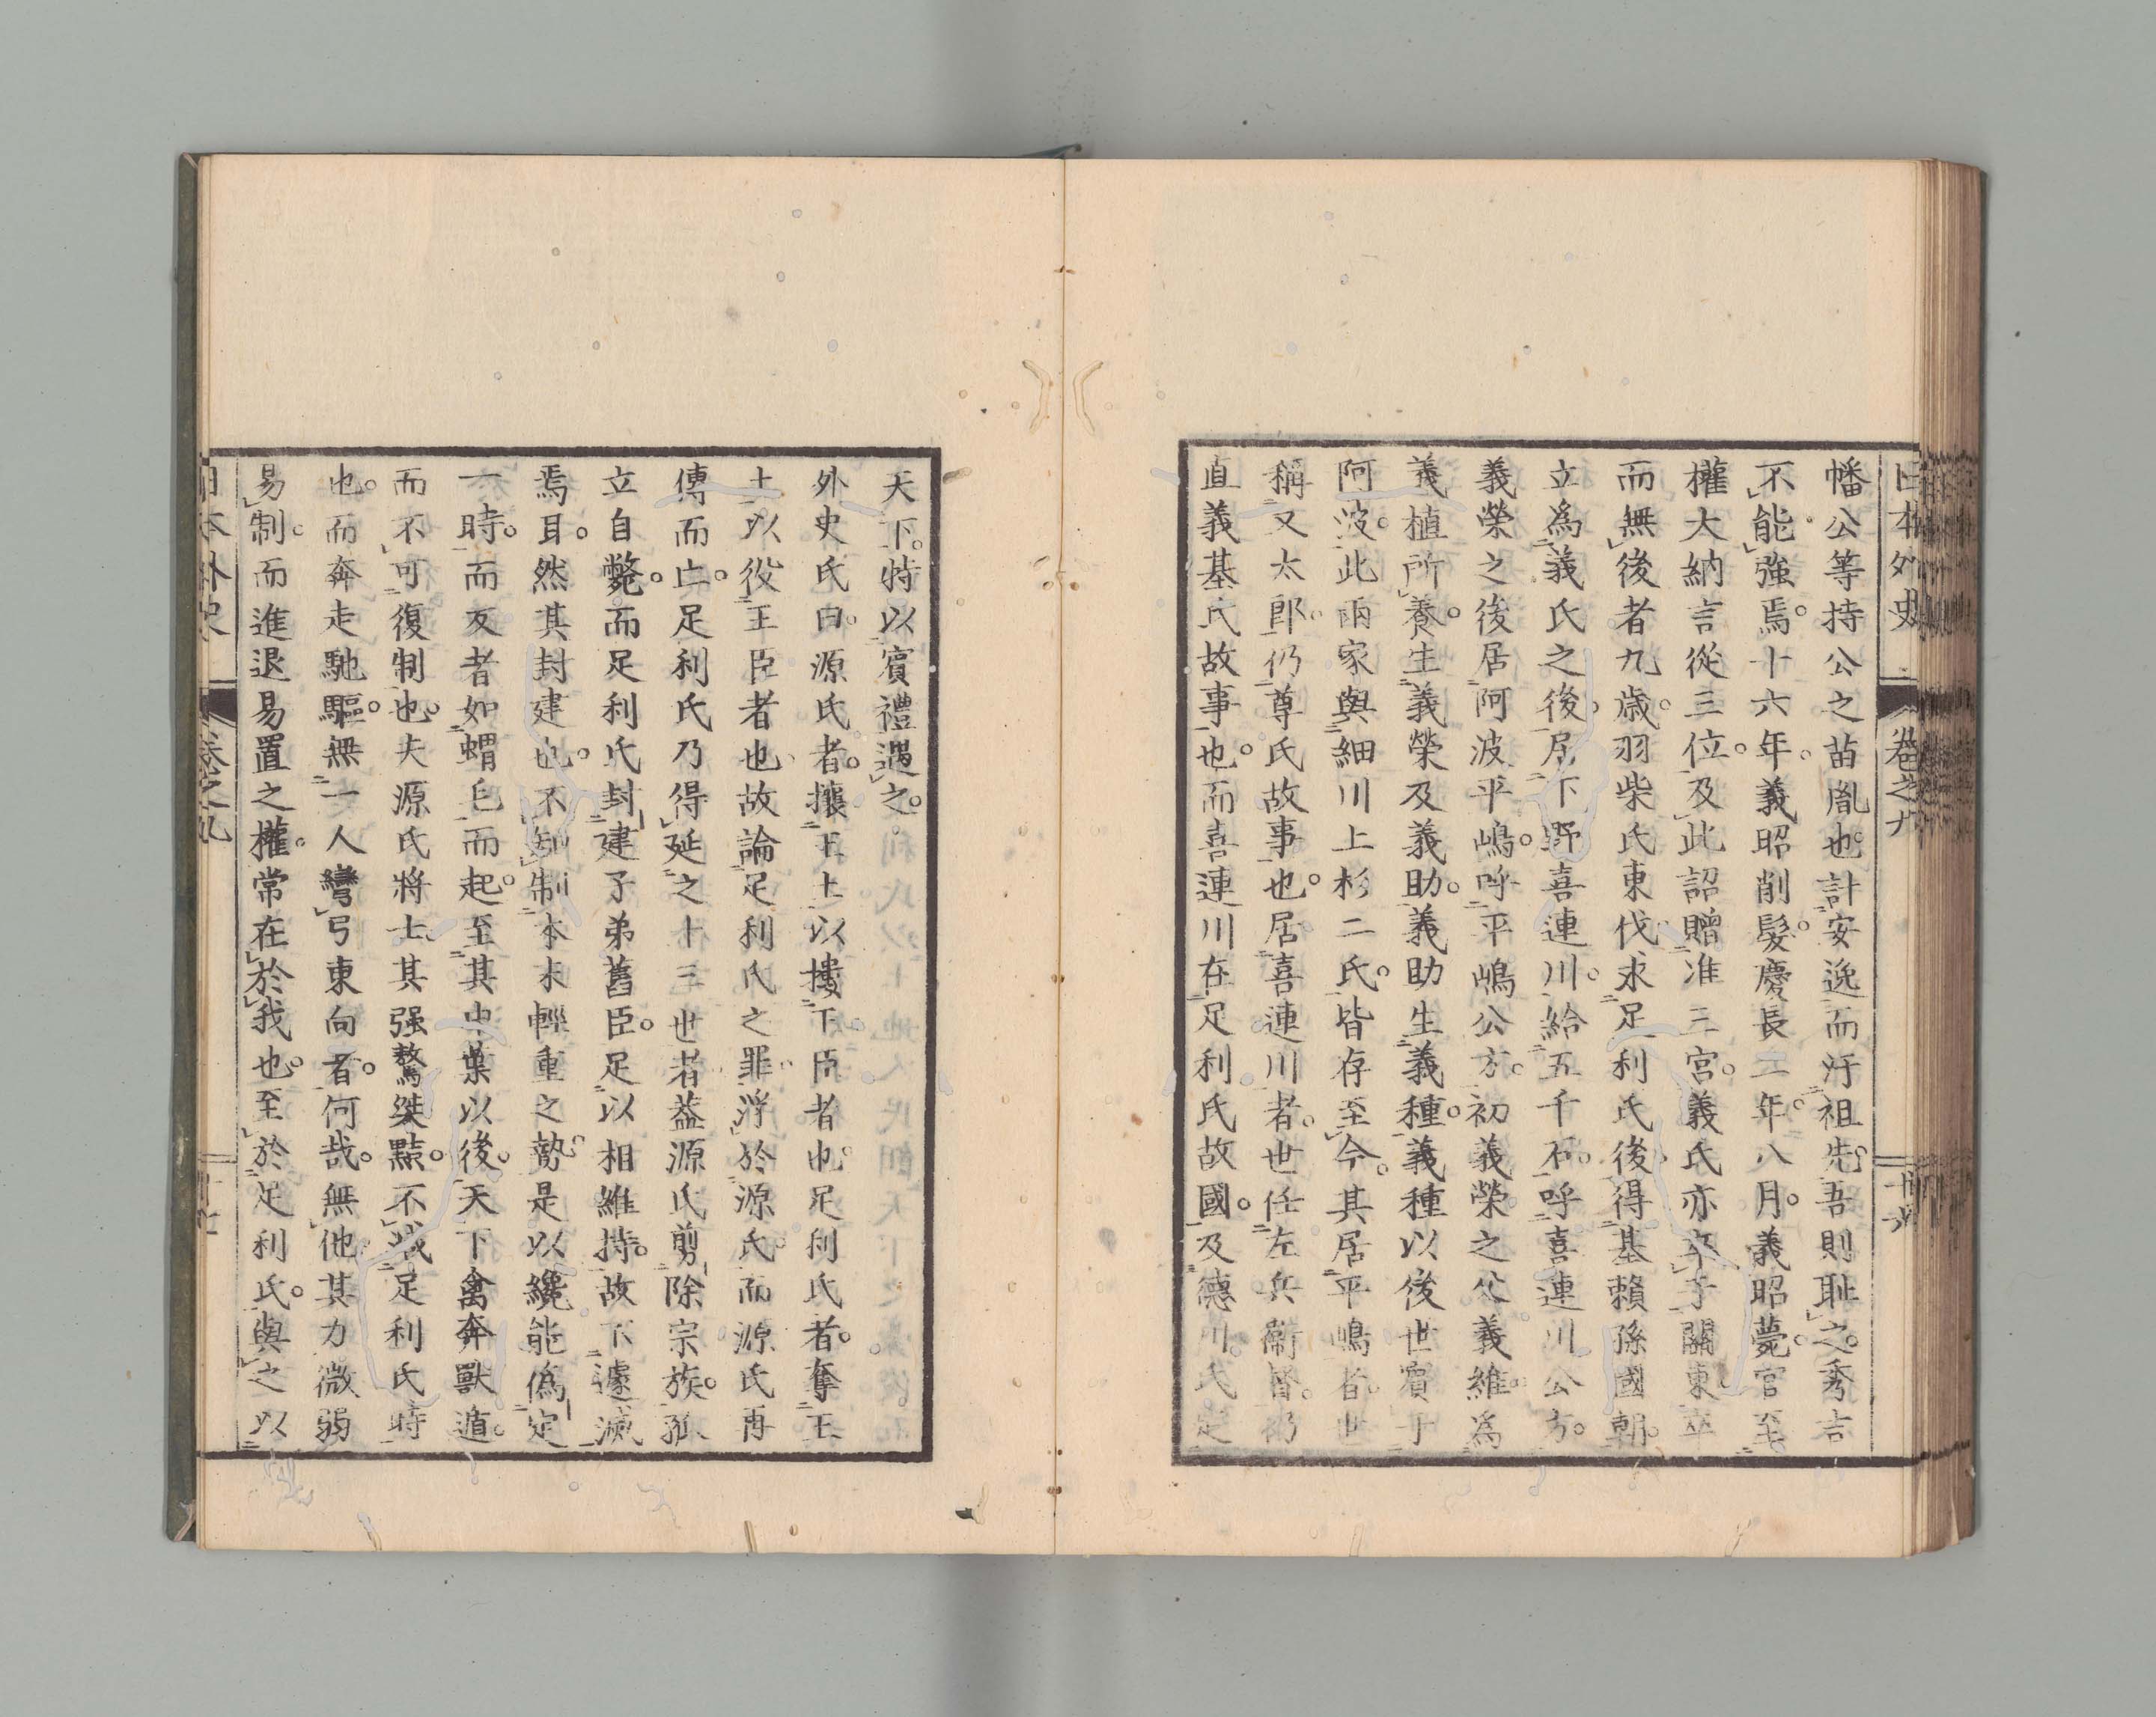 日本外史
卷之九
幡公等持公之苗胤也。計安逸而汙祖先。吾則耻之。秀吉
不能強焉。十六年。義昭削髮。慶長二年。八月。義昭薨。官至
權大納言從三位。及此詔贈准三宮。義氏亦卒于關東。卒
而無後者九歲。羽柴氏東伐。求足利氏後。得基賴孫國朝。
立為義氏之後。居下野喜連川。給五千石。呼喜連川公方。
義榮之後居阿波平嶋。呼平嶋公方。初義榮之父義維為
義植所養。生義榮及義助。義助生義種。義種以後世實于
阿波。此兩家與細川上杉二氏。皆存至今。其居平嶋者。世
稱又太郎。仍尊氏故事也。居喜連川者。世任左兵衞督。仍
直義基氏故事也。而喜連川在足利氏故國。及德川氏定
天下。特以賓禮遇之。
外史氏曰。源氏者。攘王土以攖王臣者也。足利氏者。奪王
土以役王臣者也。故論足利氏之罪。浮於源氏。而源氏再
傳而亡。足利氏乃得延之十三世者。蓋源氏剪除宗族。孤
立自斃。而足利氏封建子弟舊臣。足以相維持。故不遽滅
焉耳。然其封建也。不知制本末輕重之勢。是以纔能僞定
一時。而反者如蝟毛而起。至其中葉以後。天下禽奔獸遁。
而不可復制也。夫源氏將士。其强驁桀黠。不減足利氏時
也。而奔走馳驅。無一人彎弓東向者。何哉。無他其力微弱
易制。而進退易置之權。常在於我也。至於足利氏。與之以
日本外史
卷之九